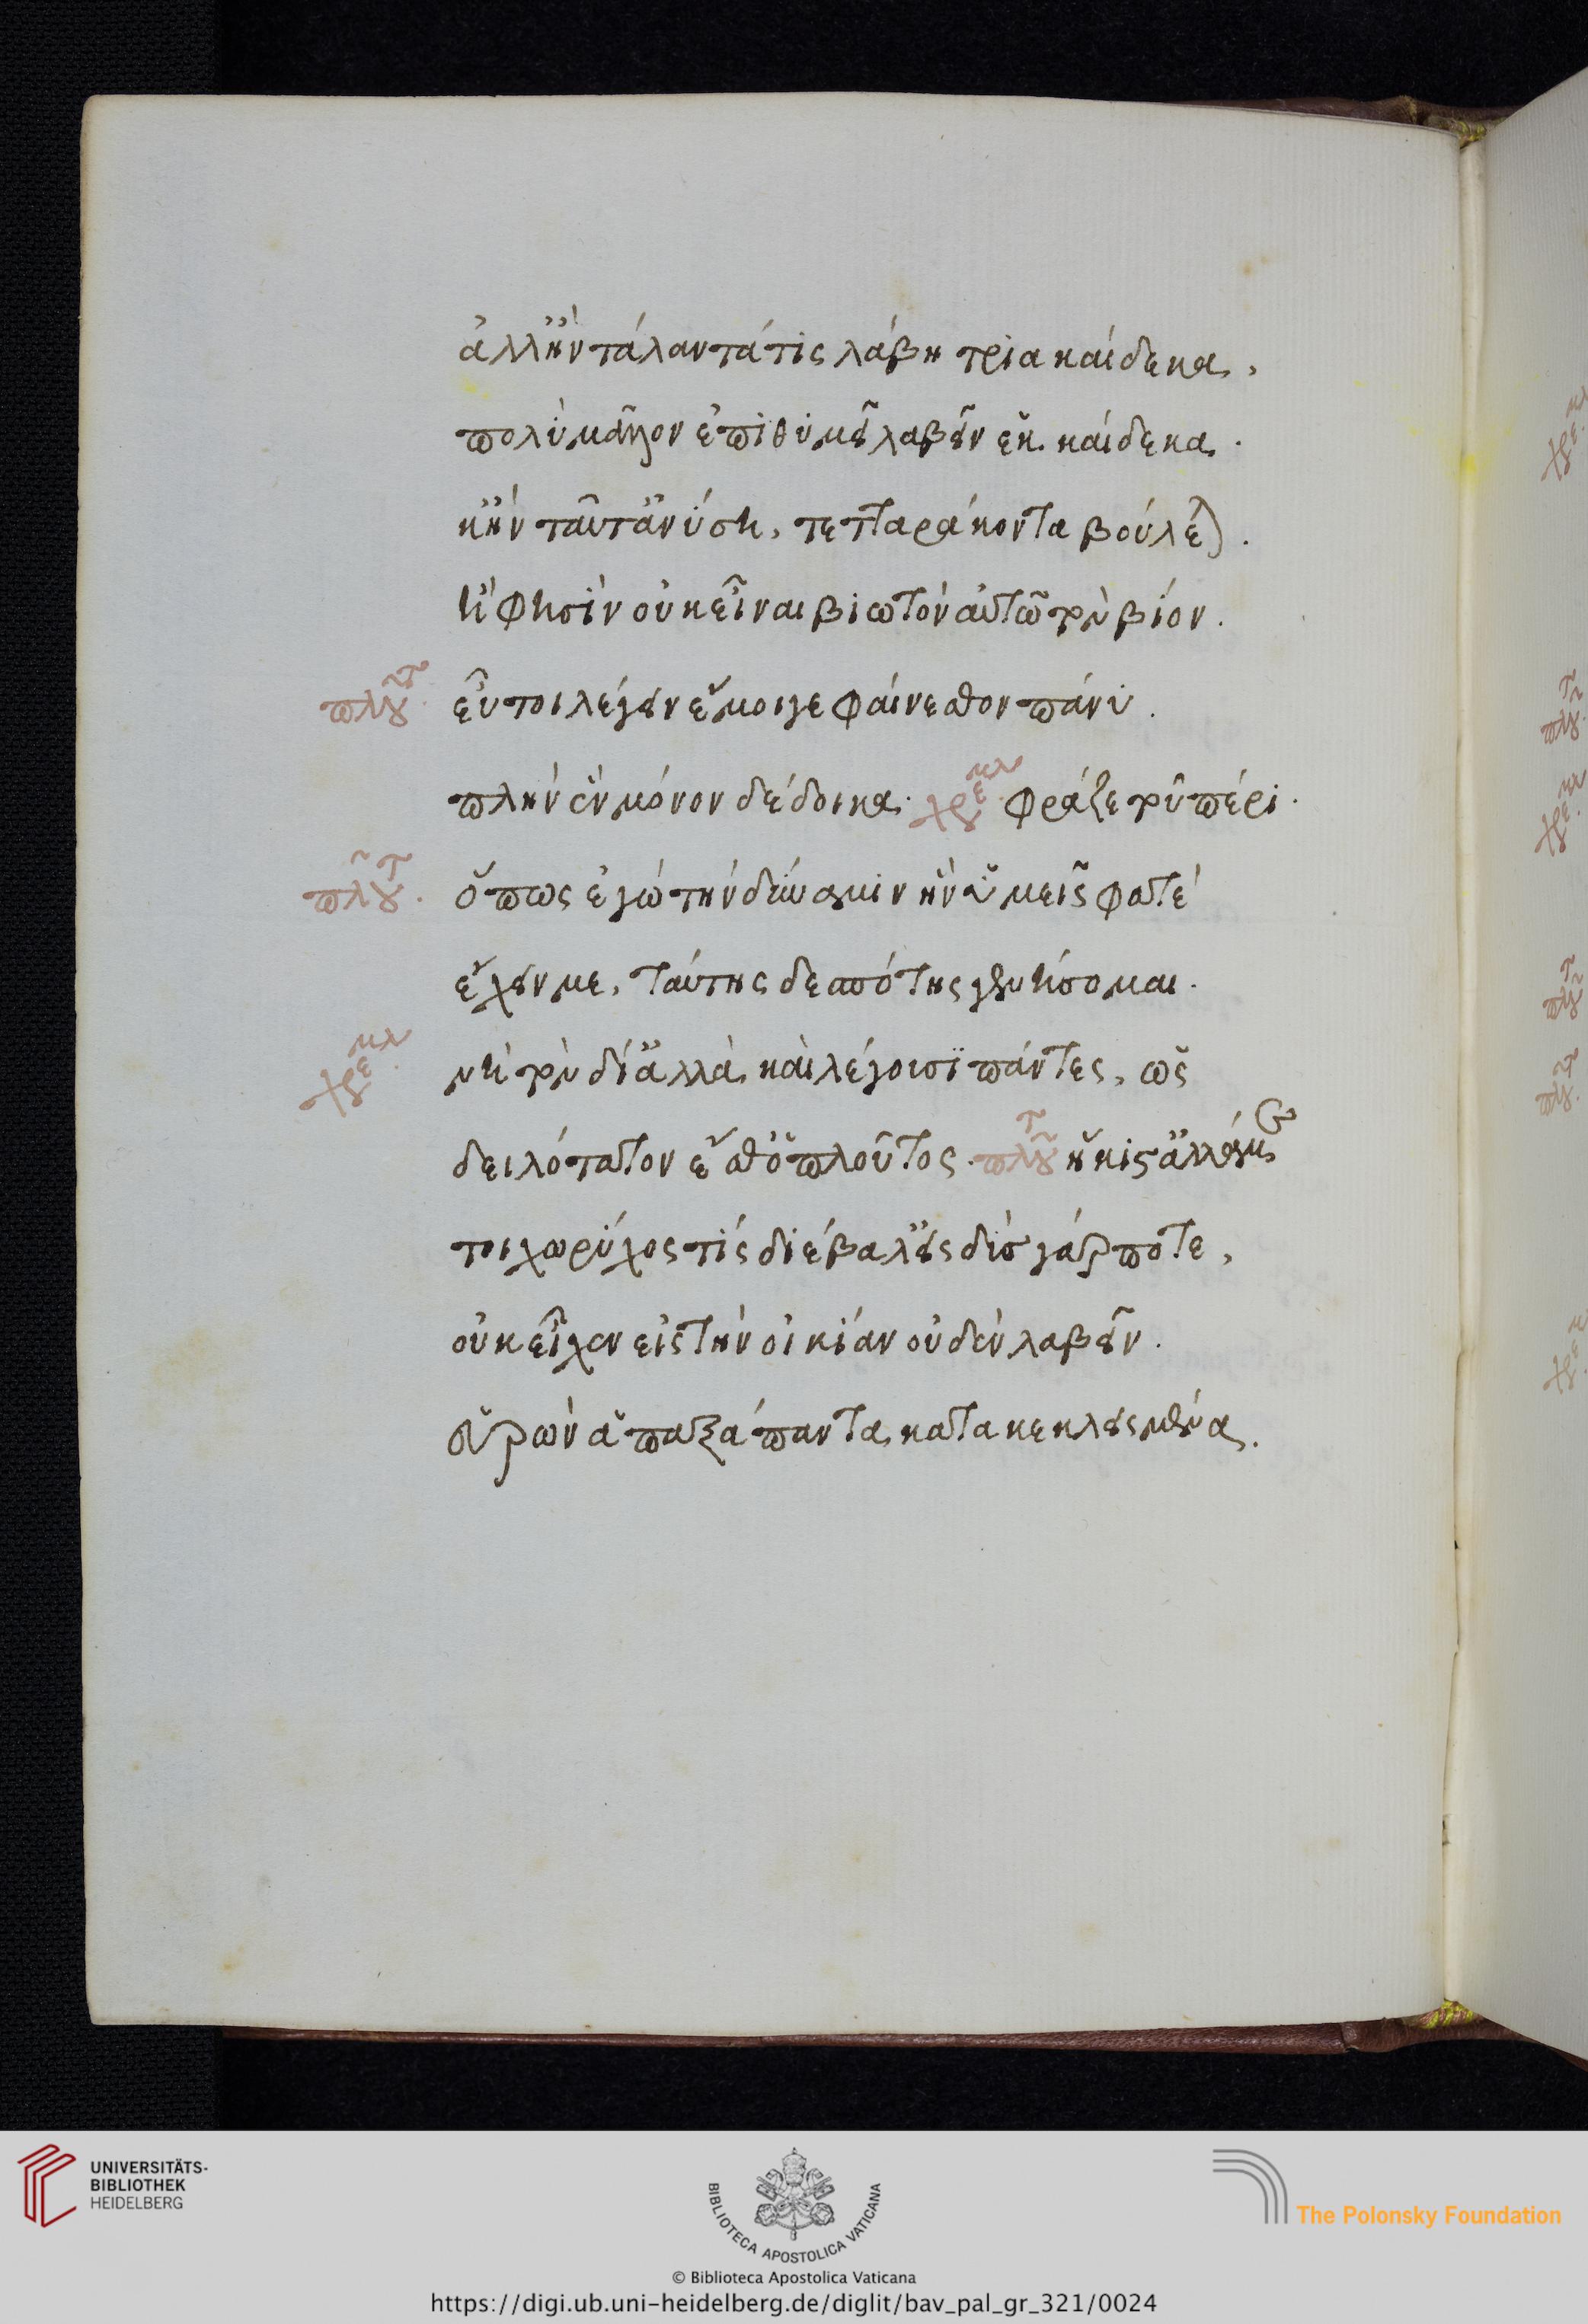 ἀλλ' ἢν τάλαντά τις λάβη τρία καίδεκα,
πολὺ μᾶλλον ἐπιθυμεῖ λαβεῖν ἑκκαίδεκα.
κἢν ταῦτ' ἀνύση, τετταράκοντα βούλεται.
ἤ φησὶν οὐκ εἶναι βιωτὸν αὐτῶ τὸν βίον.
πλοῦτ εὖ τοι λέγειν ἔμοιγε φαίνεσθον πάνυ.
πλὴν ἓν μόνον δέδοικα. χρεμλ φράζε τοῦ πέρι.
πλοῦτ. ὅπως ἐγὼ τὴν δύναμιν ἣν ὑμεῖς φατέ
ἔχειν με, ταύτης δεσπότης γενήσομαι.
χρεμλ. νὴ τὸν δί' ἀλλὰ καὶ λέγουσι πάντες, ὡς
δειλότατον ἔσθ' ὁ πλοῦτος. πλοῦτ ἥκιστ' ἀλλά με
τοιχωρύχος τίς διέβαλ' εἰς δὺς γάρ ποτε,
οὐκ εἶχεν εἰς τὴν οἰκίαν οὐδὲν λαβεῖν.
εὑρὼν ἁπαξάπαντα κατακεκλεισμένα.
UNIVERSITÄTS-
BIBLIOTHEK
HEIDELBERG
BIBLIOTECA APOSTOLICA VATICANA
The Polonsky Foundation
© Biblioteca Apostolica Vaticana
https://digi.ub.uni-heidelberg.de/diglit/bav_pal_gr_321/0024